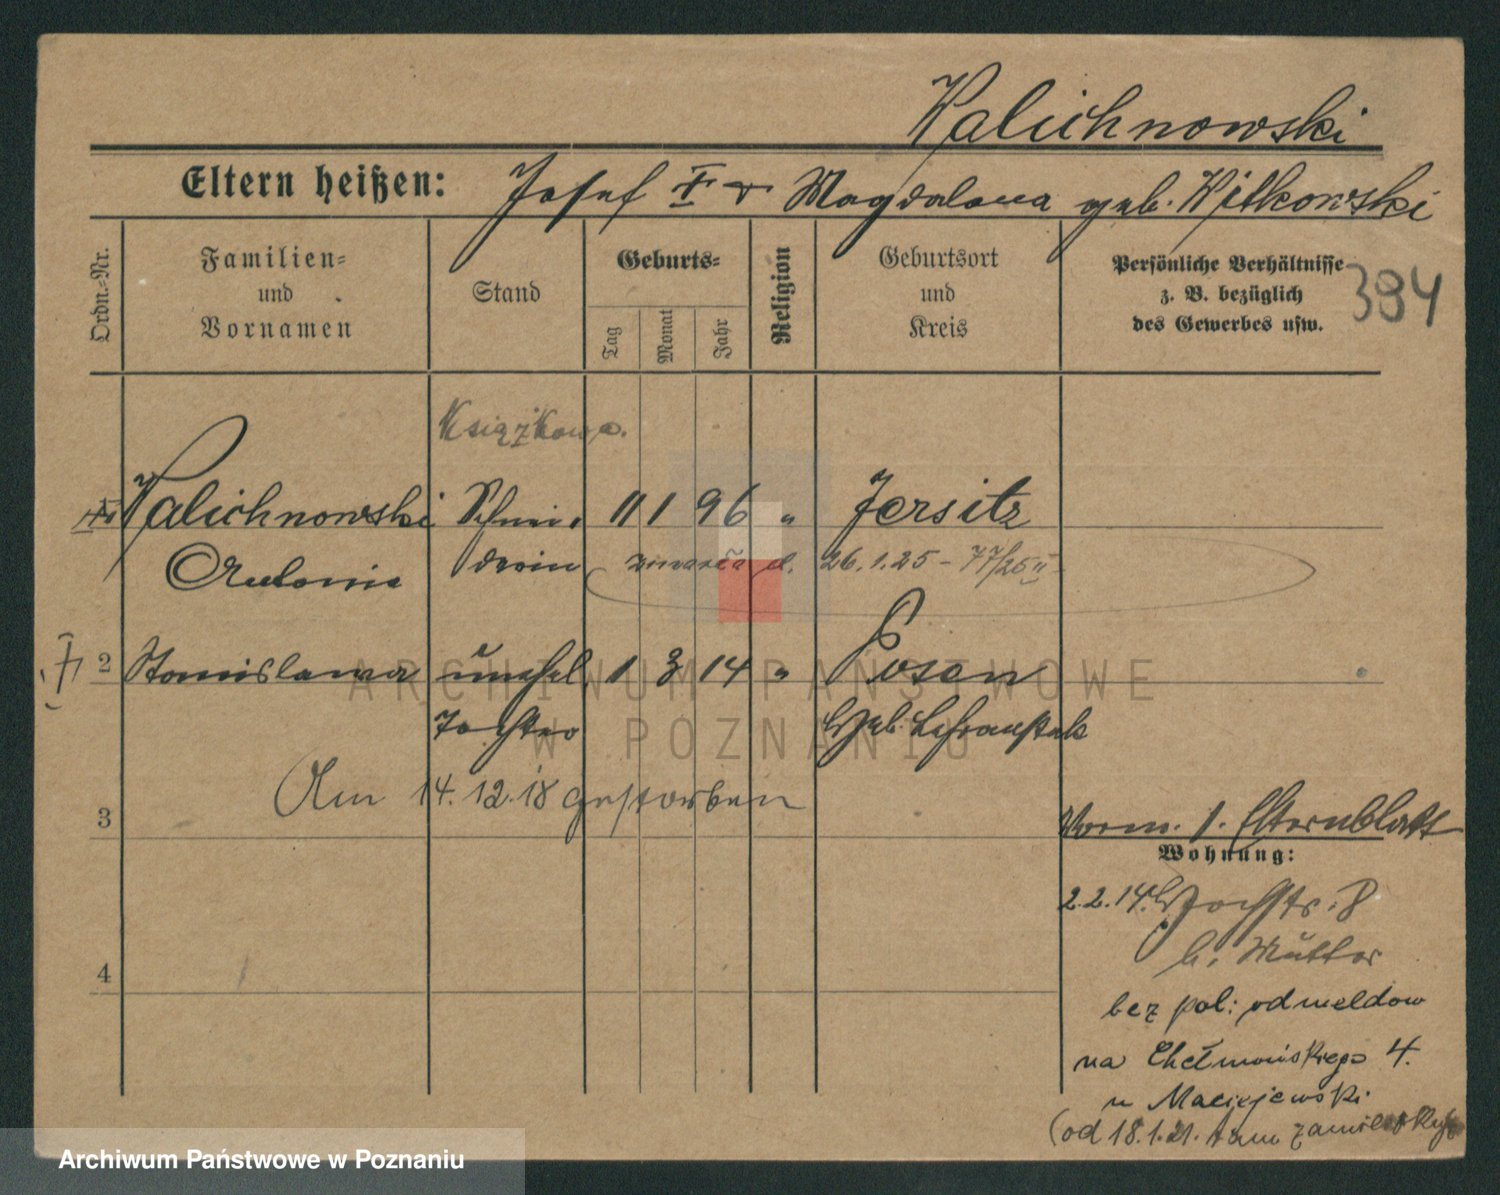 Walichnowski
Eltern heißen: Josef I † Magdalena geb. Witkowski
Ordn.-Nr.
Familien-
und
Vornamen
Stand
Geburts-
Tag
Monat
Jahr
Religion
Geburtsort
und
Kreis
Persönliche Verhältnisse
z. B. bezüglich
des Gewerbes usw.
394
Książkowa.
Walichnowski Schnei- 11 1 96 " Jersitz
Antonie derin zmarła d. 26.1.25 - 77/25 II
† 2 Stanislawa unehel. 1 3 14 " Posen
Tochter Geb. Lehranstalt
Am 14.12.18 gestorben
3
Vorm. 1. Elternblatt
Wohnung:
2.2.14. 8
b. Mutter
4
bez pol: odmeldow
na Chełmońskiego 4.
u Maciejewski
(od 18.1.21. tam
ARCHIWUM PAŃSTWOWE
W POZNANIU
Archiwum Państwowe w Poznaniu